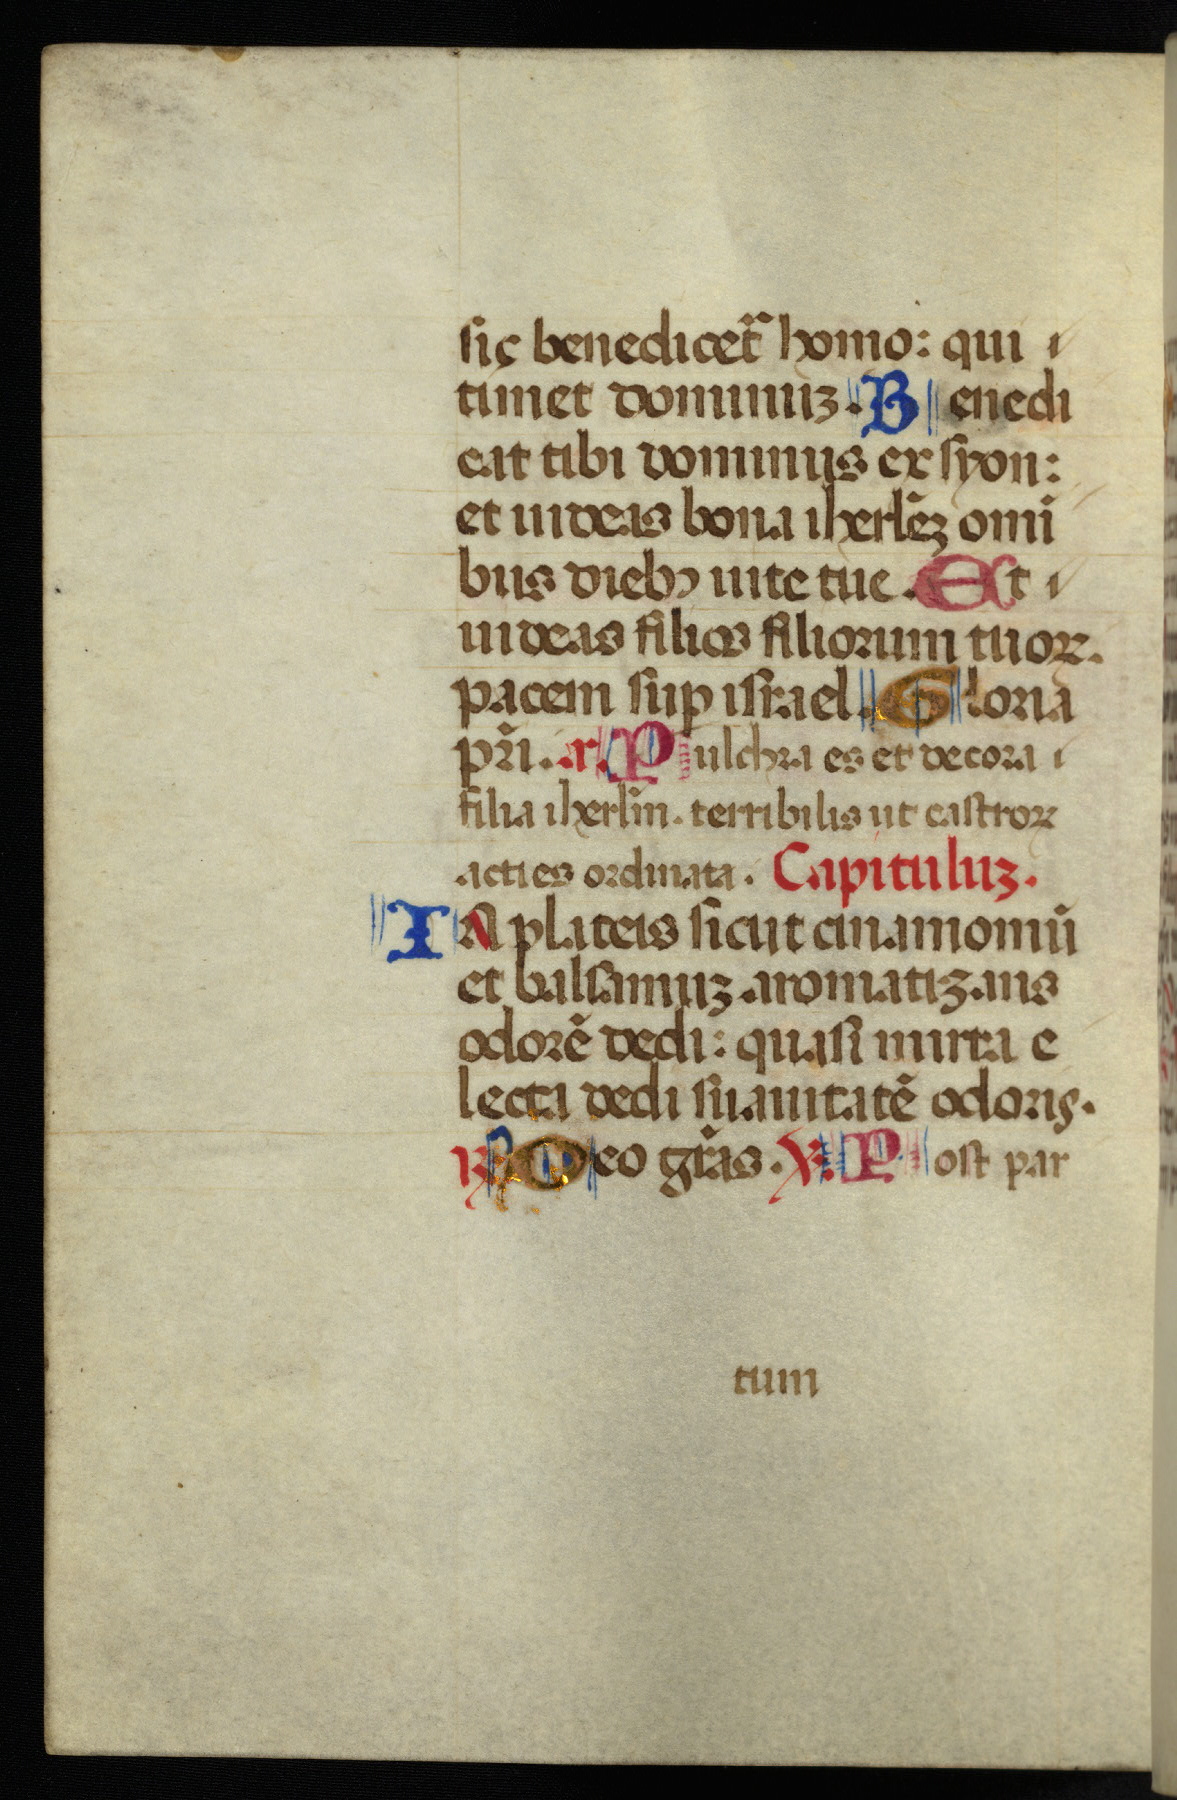 sic benedicet᷑ homo: qui
timet dominuꝫ. Benedi
cat tibi dominus ex syon:
et uideas bona iherl̃eꝫ omĩ
bus diebꝫ uite tue. Et
uideas filios filiorum tuoꝝ.
pacem sup israel. Gloria
pr̃i. r. Pulchra es et decora
filia iherl̃m. terribilis ut castroꝝ
acties ordinata. Capituluꝫ.
IN plateis sicut cinamomũ
et balsamuꝫ aromatiꝫans
odorẽ dedi: quasi mirra e
lecta dedi suauitatẽ odoris.
℟. Deo gr̃as. ℣. Post par
tum